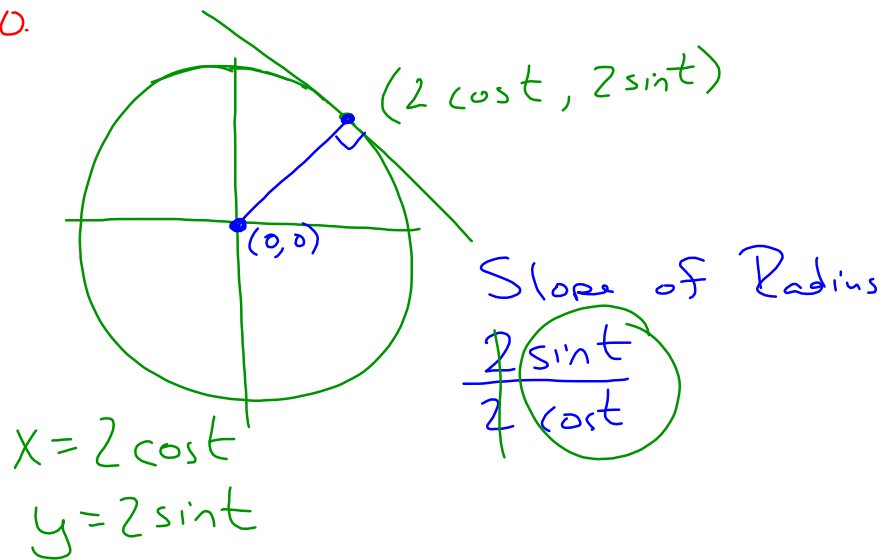 0.
(2 cost, 2 sint)
(0,0)
Slope of Radius
2 sint
2 cost
x = 2 cost
y = 2 sint